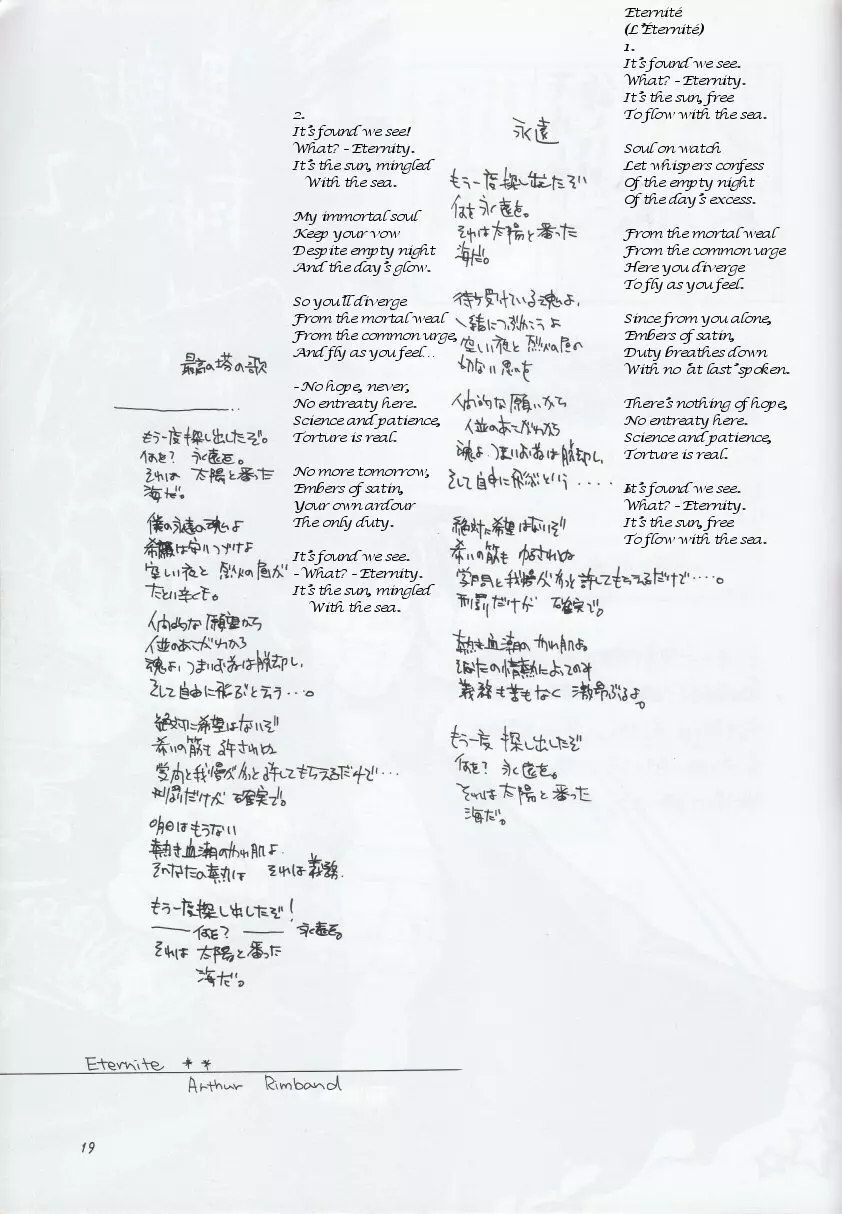 Eternité
(L'Éternité)
1.
It's found we see.
What? - Eternity.
It's the sun, free
To flow with the sea.
Soul on watch
Let whispers confess
Of the empty night
Of the day's excess.
From the mortal weal
From the common urge
Here you diverge
To fly as you feel.
Since from you alone,
Embers of satin,
Duty breathes down
With no 'at last' spoken.
There's nothing of hope,
No entreaty here.
Science and patience,
Torture is real.
It's found we see.
What? - Eternity.
It's the sun, free
To flow with the sea.
永遠
もう一度探し出したぞ
何を永遠を。
それは太陽と番った
海だ。
待ち受けている魂よ、
一緒につぶやこうよ
空しい夜と烈火の昼の
切ない思いを
人間的な願いから
人並のあこがれから
魂よ、つまりお前は脱却し、
そして自由に飛ぶという・・・・
絶対に希望はないぞ
希いの筋も 許されぬ
学問と我慢がやっと許してもらえるだけで・・・・。
刑罰だけが 確実で。
熱き血潮の やわ肌よ
そなたの情熱によってのみ
義務も苦もなく 激昂ぶるよ。
もう一度 探し出したぞ
何を? 永遠を。
それは太陽と番った
海だ。
2.
It's found we see!
What? - Eternity.
It's the sun, mingled
With the sea.
My immortal soul
Keep your vow
Despite empty night
And the day's glow.
So you'll diverge
From the mortal weal
From the common urge,
And fly as you feel...
- No hope, never,
No entreaty here.
Science and patience,
Torture is real.
No more tomorrow,
Embers of satin,
Your own ardour
The only duty.
It's found we see.
- What? - Eternity.
It's the sun, mingled
With the sea.
最高の塔の歌
もう一度探し出したぞ。
何を? 永遠を。
それは 太陽と番った
海だ。
僕の永遠の魂よ
希願は守りつづけよ
空しい夜と 烈火の昼が
たとい辛くも。
人間的な願望から
人並のあこがれから
魂よ、つまりお前は脱却し、
そして自由に飛ぶと云う・・・。
絶対に希望はないぞ
希いの筋も 許されぬ
学問と我慢がやっと許してもらえるだけで・・・
刑罰だけが 確実で。
明日はもうない
熱き血潮のやわ肌よ
そなたの熱は それは義務.
もう一度探し出したぞ!
── 何を? ── 永遠を。
それは 太陽と番った
海だ。
Eternite **
Arthur Rimband
19